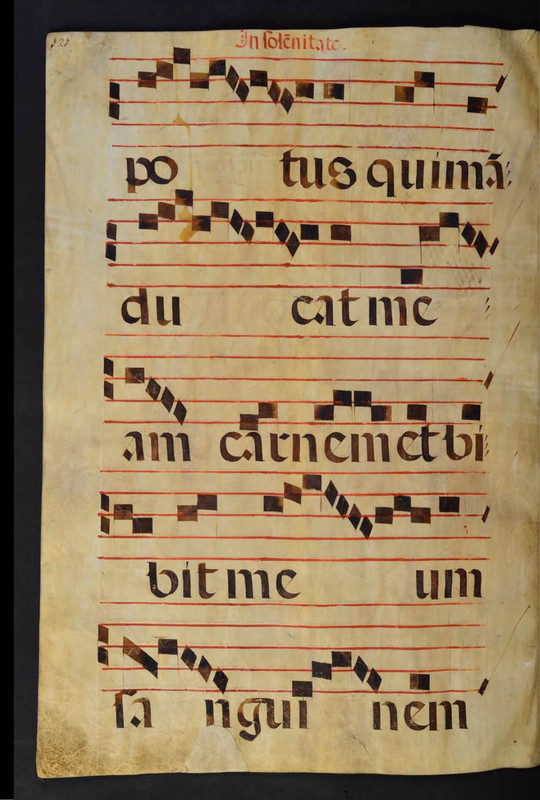 In solēnitate.
po tus qui mā
du cat me
am carnem et bi
bit me um
sa ngui nem